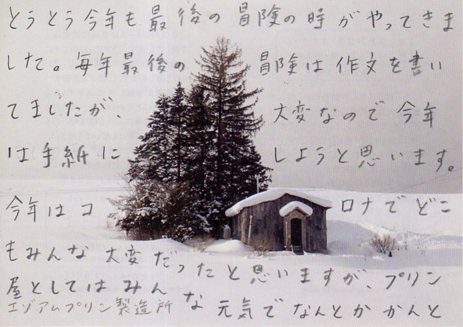 とうとう今年も最後の冒険の時がやってきま
した。毎年最後の冒険は作文を書い
てましたが、大変なので今年
は手紙にしようと思います。
今年はコロナでどこ
もみんな大変だったと思いますが、プリン
屋としてはみんな元気でなんとかかんと
エゾアムプリン製造所